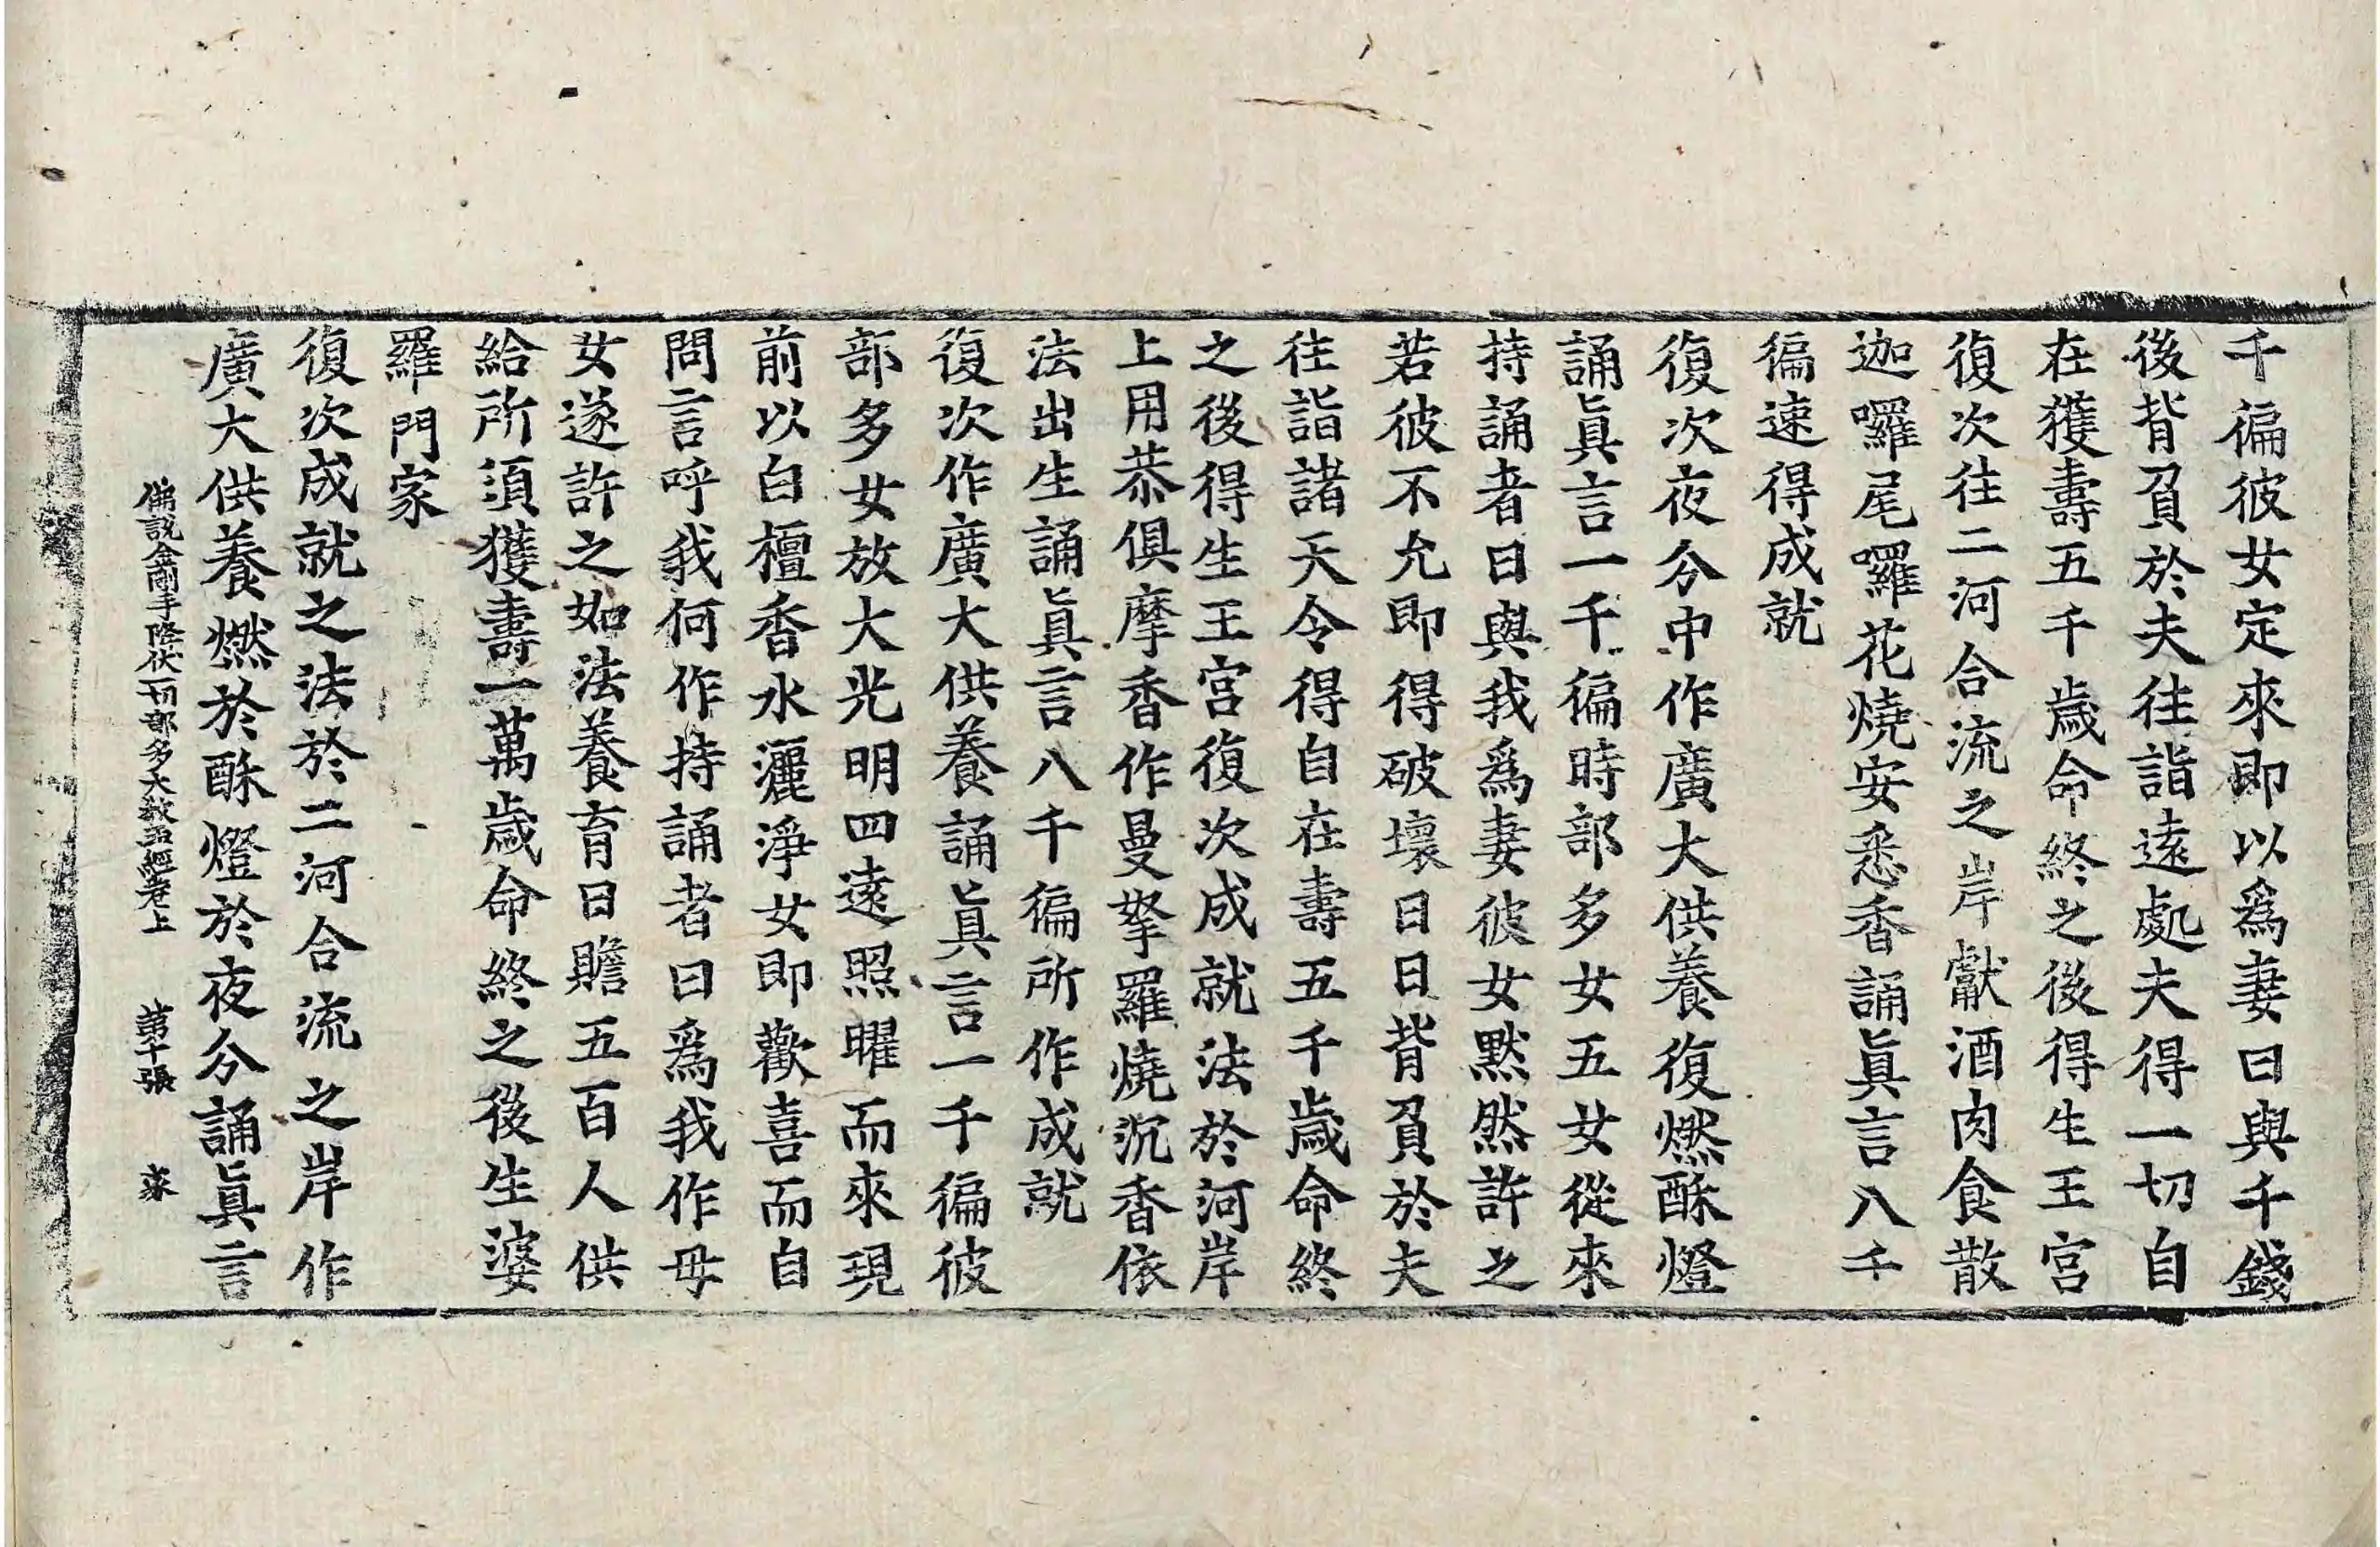 千徧彼女定來即以爲妻日與千錢
後背負於夫往詣遠處夫得一切自
在獲壽五千歲命終之後得生王宮
復次往二河合流之岸獻酒肉食散
迦囉尾囉花燒安悉香誦眞言八千
徧速得成就
復次夜分中作廣大供養復燃酥燈
誦眞言一千徧時部多女五女從來
持誦者曰與我爲妻彼女默然許之
若彼不允即得破壞日日背負於夫
往詣諸天令得自在壽五千歲命終
之後得生王宮復次成就法於河岸
上用恭俱摩香作曼拏羅燒沉香依
法出生誦眞言八千徧所作成就
復次作廣大供養誦眞言一千徧彼
部多女放大光明四遠照曜而來現
前以白檀香水灑淨女即歡喜而自
問言呼我何作持誦者曰爲我作母
女遂許之如法養育日贍五百人供
給所須獲壽一萬歲命終之後生婆
羅門家
復次成就之法於二河合流之岸作
廣大供養燃於酥燈於夜分誦眞言
佛說金剛手降伏一切部多大教王經卷上 第十張